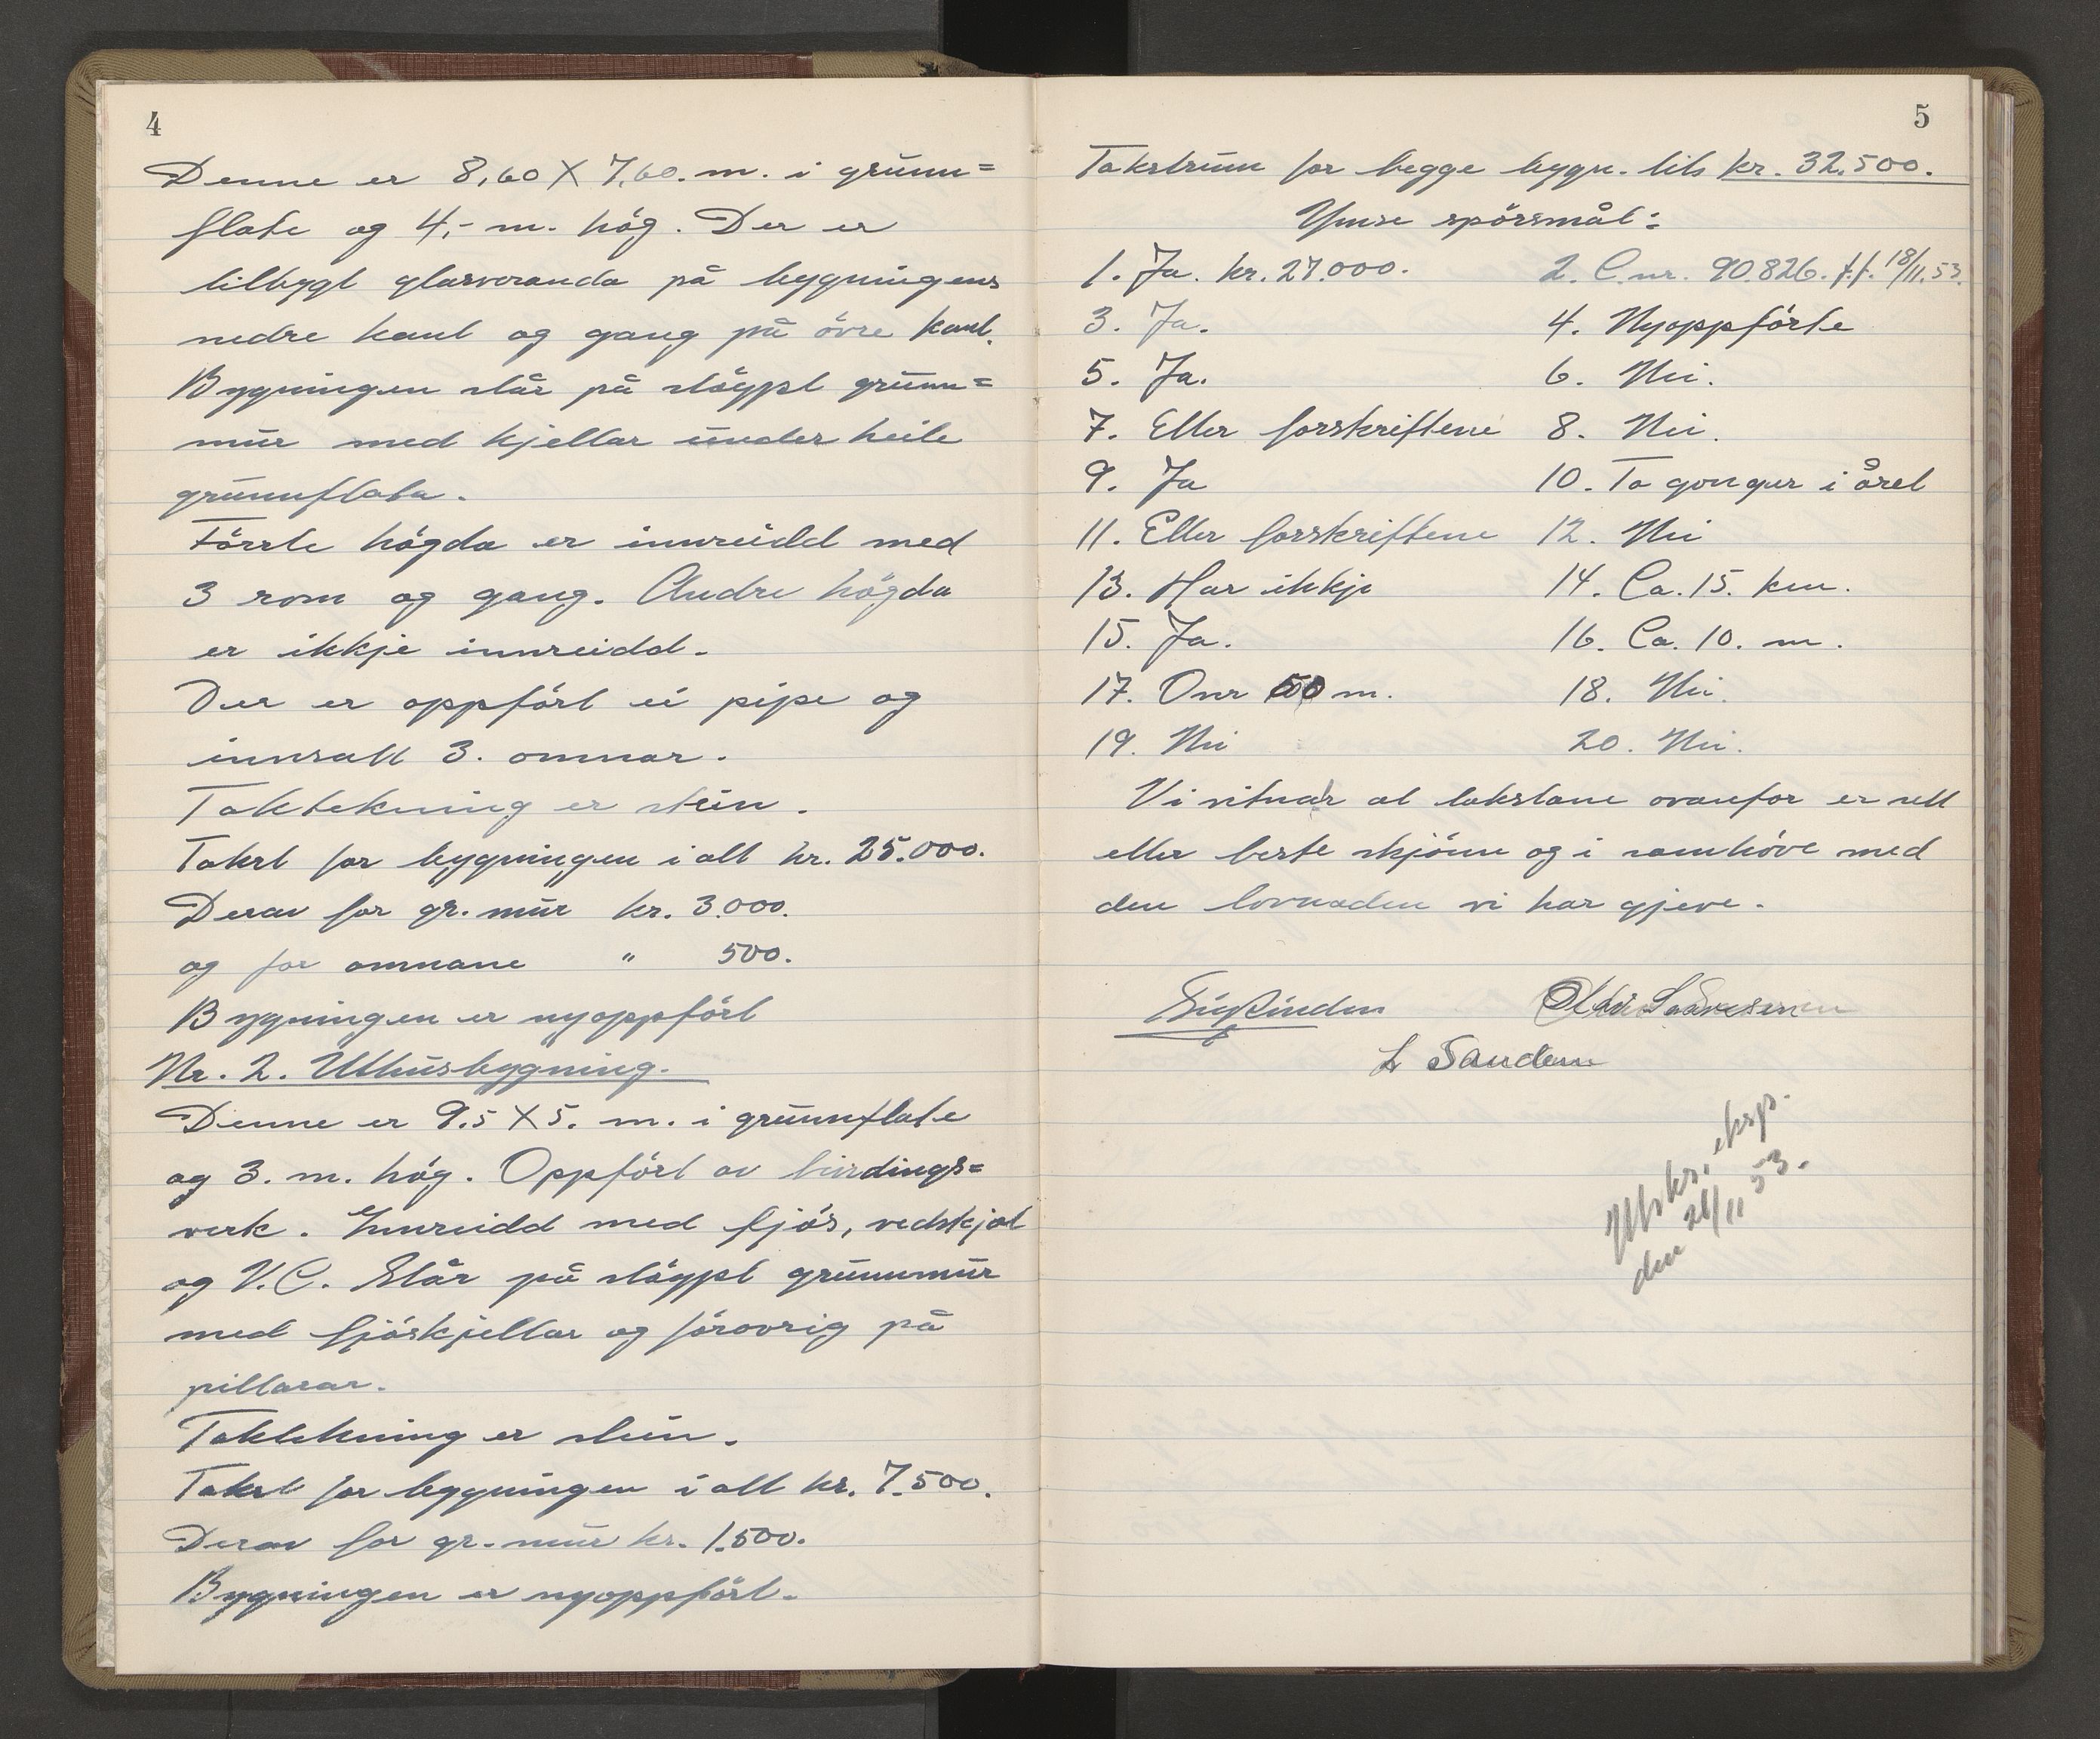 4
Denne er 8,60 X 7,60. m. i grunn=
flate og 4,- m. høg. Der er
tilbygt glasveranda på bygningens
nedre kant og gang på övre kant.
Bygningen står på stöypt grunn=
mur med kjellar under heile
grunnflata.
Förste högda er innreidd med
3 rom og gang. Andre högda
er ikkje innreidd.
Der er oppfört ei pipe og
innsatt 3. omnar.
Taktekning er stein.
Takst for bygningen i alt kr. 25.000.
Derav for gr. mur kr. 3.000.
og for omnane " 500.
Bygningen er nyoppfört
Nr. 2. Uthusbygning.
Denne er 9.5 X 5. m. i grunnflate
og 3. m. høg. Oppfört av bindings=
verk. Innreidd med fjös, vedskjol
og V.C. Står på stöypt grunnmur
med fjöskjellar og forövrig på
pillarar.
Taktekning er stein.
Takst for bygningen i alt kr. 7.500.
Derav for gr. mur kr. 1.500.
Bygningen er nyoppfört.
5
Takstsum for begge bygn. tils kr. 32.500.
Ymse spörsmål:
1. Ja. kr. 27.000. 2. L.nr. 90.826. f.f. 18/11.53.
3. Ja. 4. Nyoppförte
5. Ja. 6. Nei.
7. Etter forskriftene 8. Nei.
9. Ja 10. To gonger i året
11. Etter forskriftene 12. Nei
13. Har ikkje 14. Ca. 15. km.
15. Ja. 16. Ca. 10. m.
17. Over 50 m. 18. Nei.
19. Nei 20. Nei.
Vi vitnar at takstane ovanfor er rett
etter beste skjönn og i samhöve med
den lovnaden vi har gjeve.
L Sanden
Utskr. eksp.
den 26/11 53.